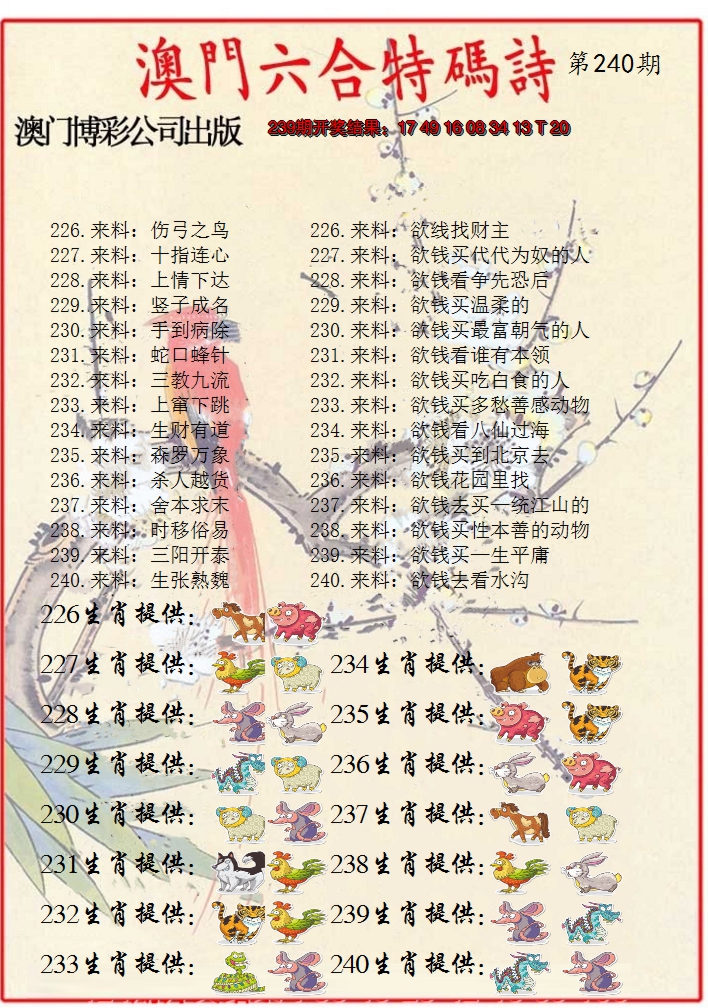 澳門六合特碼詩 第240期
澳门博彩公司出版 239期开奖结果：17 49 16 08 34 13 T 20
226.来料：伤弓之鸟 226.来料：欲线找财主
227.来料：十指连心 227.来料：欲钱买代代为奴的人
228.来料：上情下达 228.来料：欲钱看争先恐后
229.来料：竖子成名 229.来料：欲钱买温柔的
230.来料：手到病除 230.来料：欲钱买最富朝气的人
231.来料：蛇口蜂针 231.来料：欲钱看谁有本领
232.来料：三教九流 232.来料：欲钱买吃白食的人
233.来料：上窜下跳 233.来料：欲钱买多愁善感动物
234.来料：生财有道 234.来料：欲钱看八仙过海
235.来料：森罗万象 235.来料：欲钱买到北京去
236.来料：杀人越货 236.来料：欲钱花园里找
237.来料：舍本求末 237.来料：欲钱去买一统江山的
238.来料：时移俗易 238.来料：欲钱买性本善的动物
239.来料：三阳开泰 239.来料：欲钱买一生平庸
240.来料：生张熟魏 240.来料：欲钱去看水沟
226生肖提供：
227生肖提供： 234生肖提供：
228生肖提供： 235生肖提供：
229生肖提供： 236生肖提供：
230生肖提供： 237生肖提供：
231生肖提供： 238生肖提供：
232生肖提供： 239生肖提供：
233生肖提供： 240生肖提供：